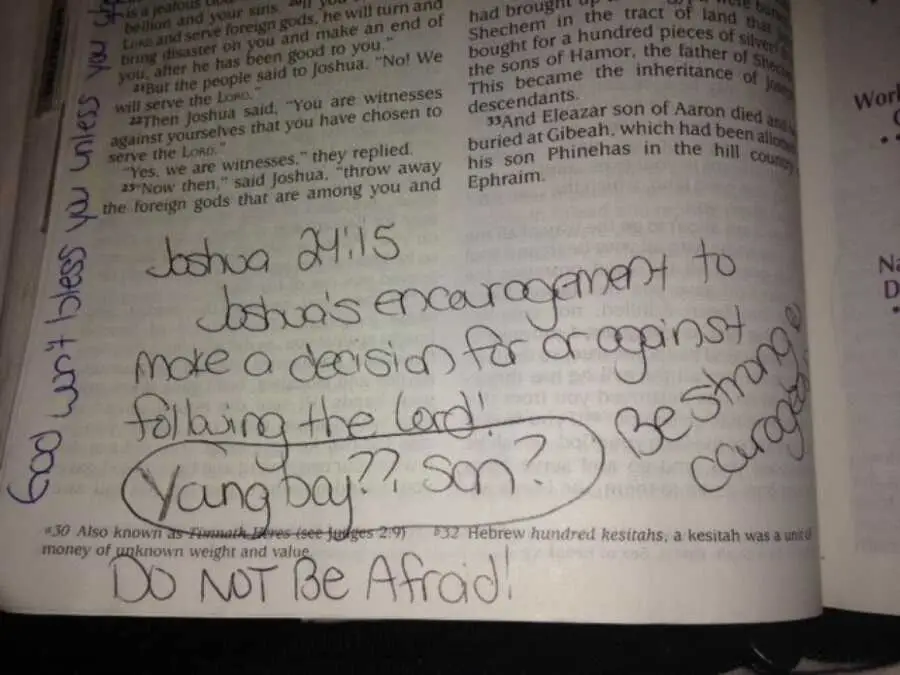 is a jealous
bellion and your sins. 20If you
LORD and serve foreign gods, he will turn and
bring disaster on you and make an end of
you, after he has been good to you."
21But the people said to Joshua, "No! We
will serve the LORD."
22Then Joshua said, "You are witnesses
against yourselves that you have chosen to
serve the LORD."
"Yes, we are witnesses," they replied.
23"Now then," said Joshua, "throw away
the foreign gods that are among you and
had brought up
Shechem in the tract of land that
bought for a hundred pieces of silver
the sons of Hamor, the father of
This became the inheritance of
descendants.
33And Eleazar son of Aaron died and
buried at Gibeah, which had been
his son Phinehas in the hill country
Ephraim.
God won't bless you unless you
Joshua 24:15
Joshua's encouragement to
make a decision for or against
following the Lord!
Young boy?? Son?
Be strong &
b30 Also known as Timnath Heres (see Judges 2:9)
b32 Hebrew hundred kesitahs, a kesitah was a unit of
money of unknown weight and value.
DO NOT Be Afraid!